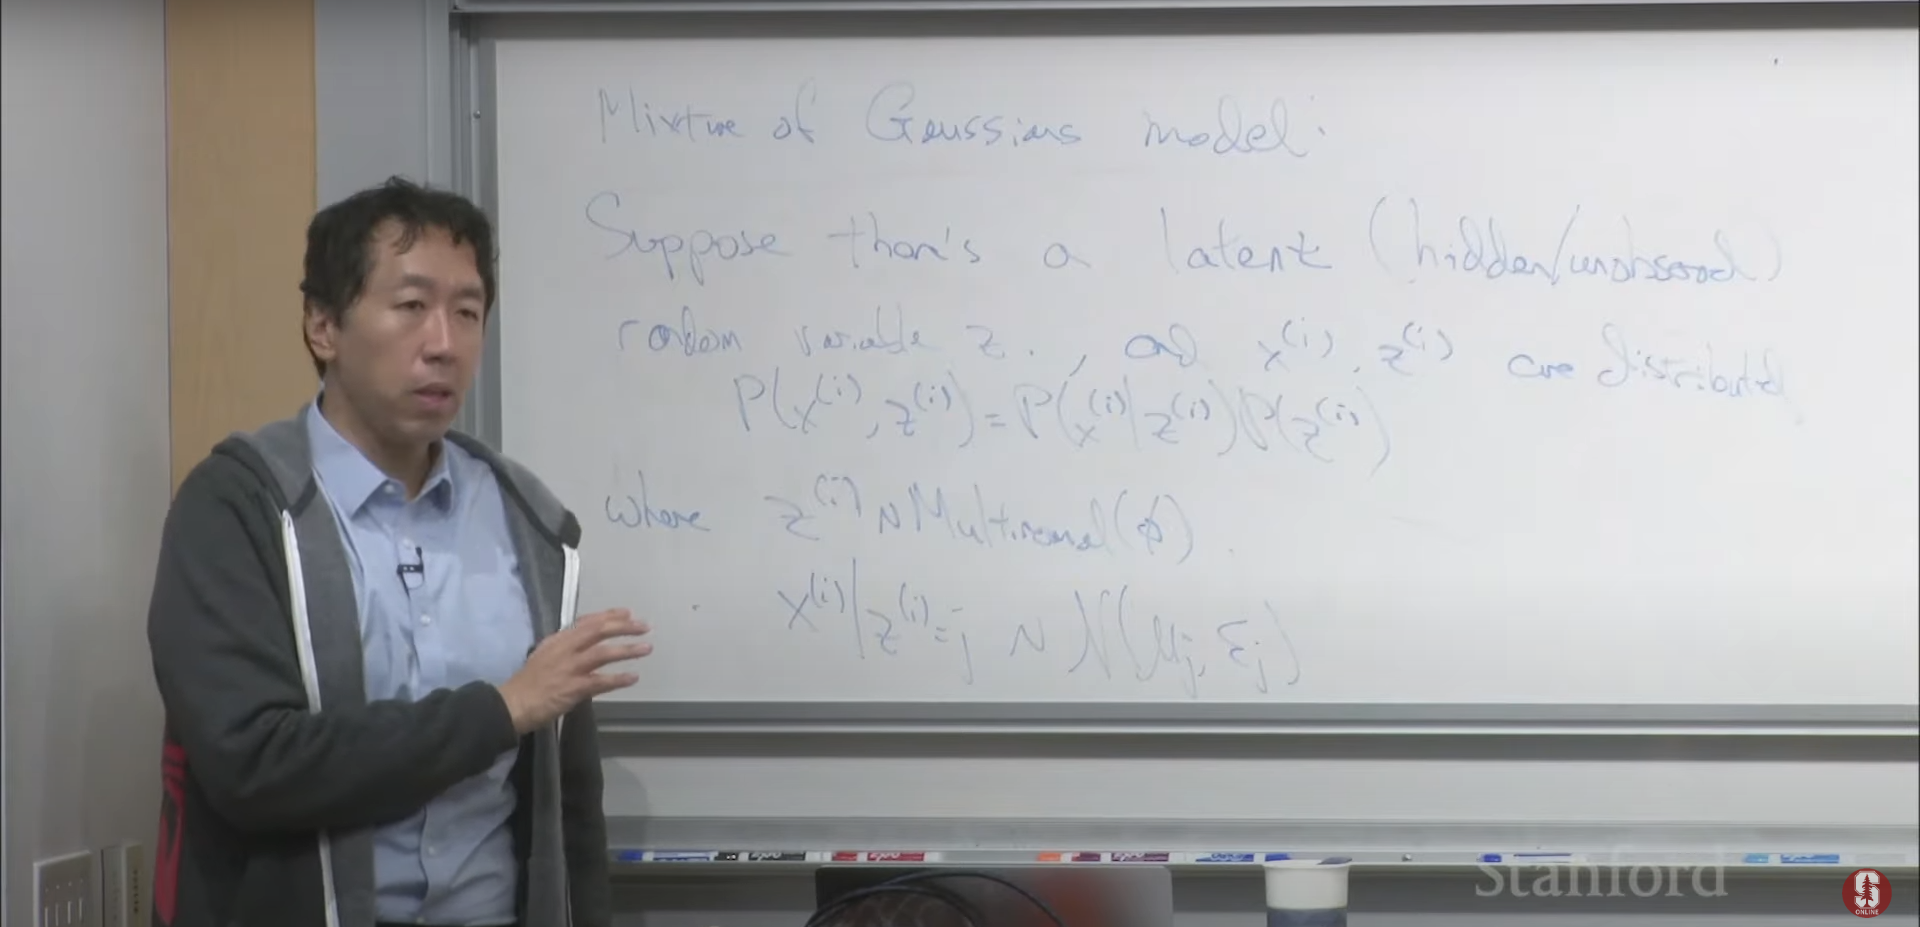 Mixture of Gaussians model:
Suppose there's a latent (hidden/unobserved)
random variable z., and x^(i), z^(i) are distributed
P(x^(i), z^(i)) = P(x^(i)|z^(i)) P(z^(i))
where z^(i) ~ Multinomial(φ).
x^(i)|z^(i)=j ~ N(μ_j, Σ_j)
Stanford
S
ONLINE